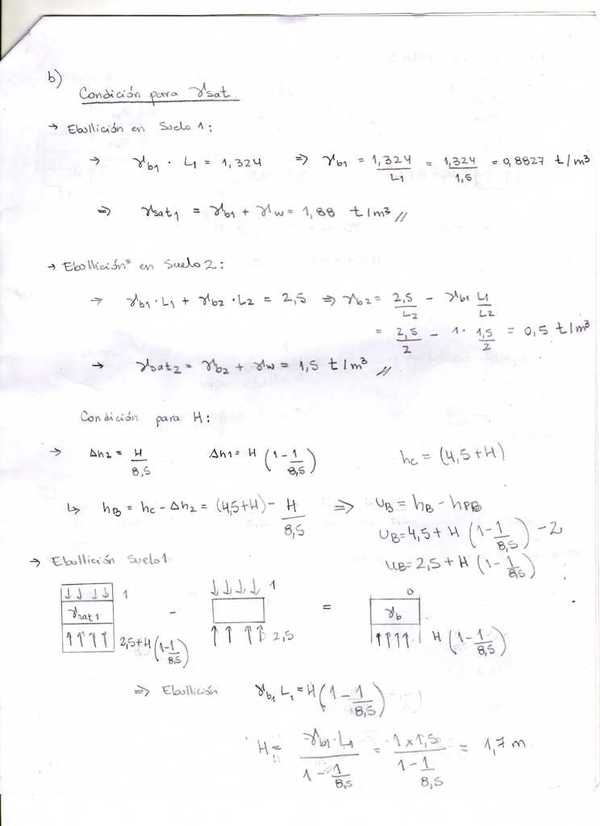 b)
Condición para γsat
→ Ebullición en Suelo 1:
→ γb1 · L1 = 1,324 ⇒ γb1 = 1,324/L1 = 1,324/1,5 = 0,8827 t/m³
⇒ γsat1 = γb1 + γw = 1,88 t/m³ //
→ Ebullición en Suelo 2:
→ γb1·L1 + γb2·L2 = 2,5 ⇒ γb2 = 2,5/L2 − γb1 L1/L2
= 2,5/2 − 1· 1,5/2 = 0,5 t/m³
→ γsat2 = γb2 + γw = 1,5 t/m³ //
Condición para H:
→ Δh2 = H/8,5 Δh1 = H (1 − 1/8,5) hc = (4,5+H)
↳ hB = hc − Δh2 = (4,5+H) − H/8,5 ⇒ uB = hB − hPB
uB = 4,5 + H (1 − 1/8,5) − 2
uB = 2,5 + H (1 − 1/8,5)
→ Ebullición Suelo 1
↓ ↓ ↓ ↓ 1 ↓ ↓ ↓ ↓ 1 0
γsat1 − = γb
↑ ↑ ↑ ↑ 2,5+H (1 − 1/8,5) ↑ ↑ ↑ ↑ 2,5 ↑ ↑ ↑ ↑ H (1 − 1/8,5)
⇒ Ebullición γb1 L1 = H (1 − 1/8,5)
H = γb1·L1/(1 − 1/8,5) = 1x1,5/(1 − 1/8,5) = 1,7 m